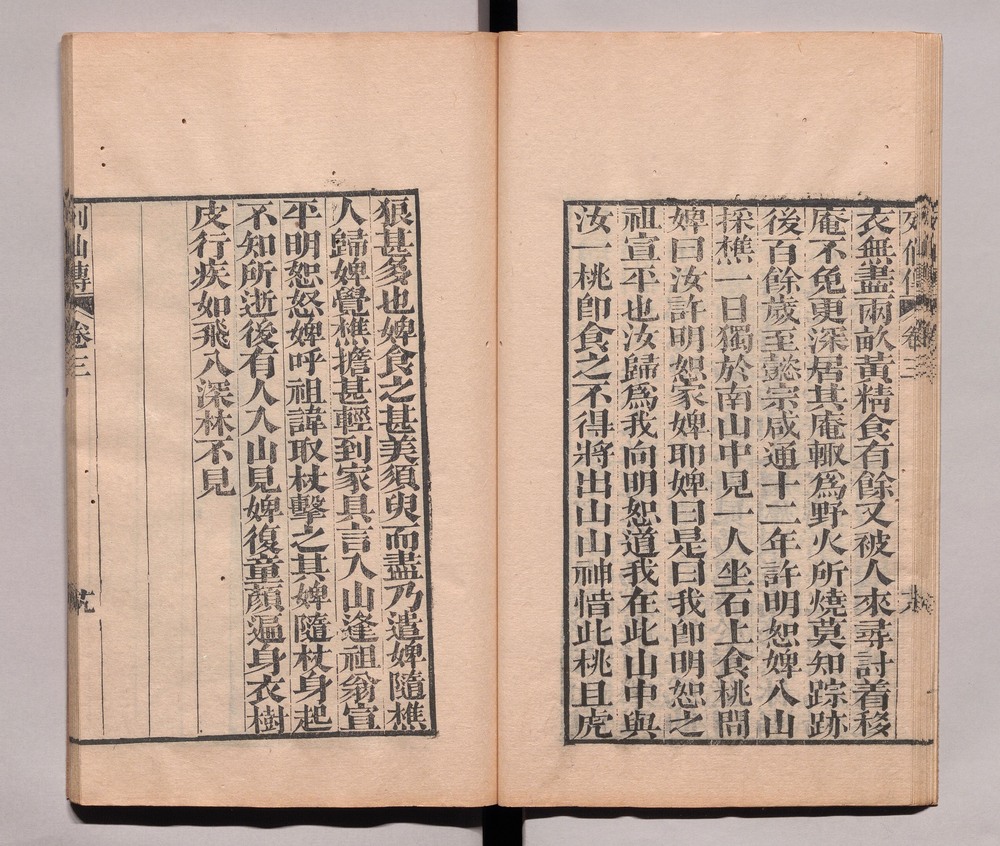 列仙傳 卷三
衣無盡兩畝黃精食有餘又被人來尋討着移
庵不免更深居其庵輙爲野火所燒莫知踪跡
後百餘歲至懿宗咸通十二年許明恕婢入山
採樵一日獨於南山中見一人坐石上食桃問
婢曰汝許明恕家婢耶婢曰是曰我卽明恕之
祖宣平也汝歸爲我向明恕道我在此山中與
汝一桃卽食之不得將出山山神惜此桃且虎
狼甚多也婢食之甚美須臾而盡乃遣婢隨樵
人歸婢覺樵擔甚輕到家具言入山逢祖翁宣
平明恕怒婢呼祖諱取杖擊之其婢隨杖身起
不知所逝後有人入山見婢復童顏遍身衣樹
皮行疾如飛入深林不見
列仙傳 卷三